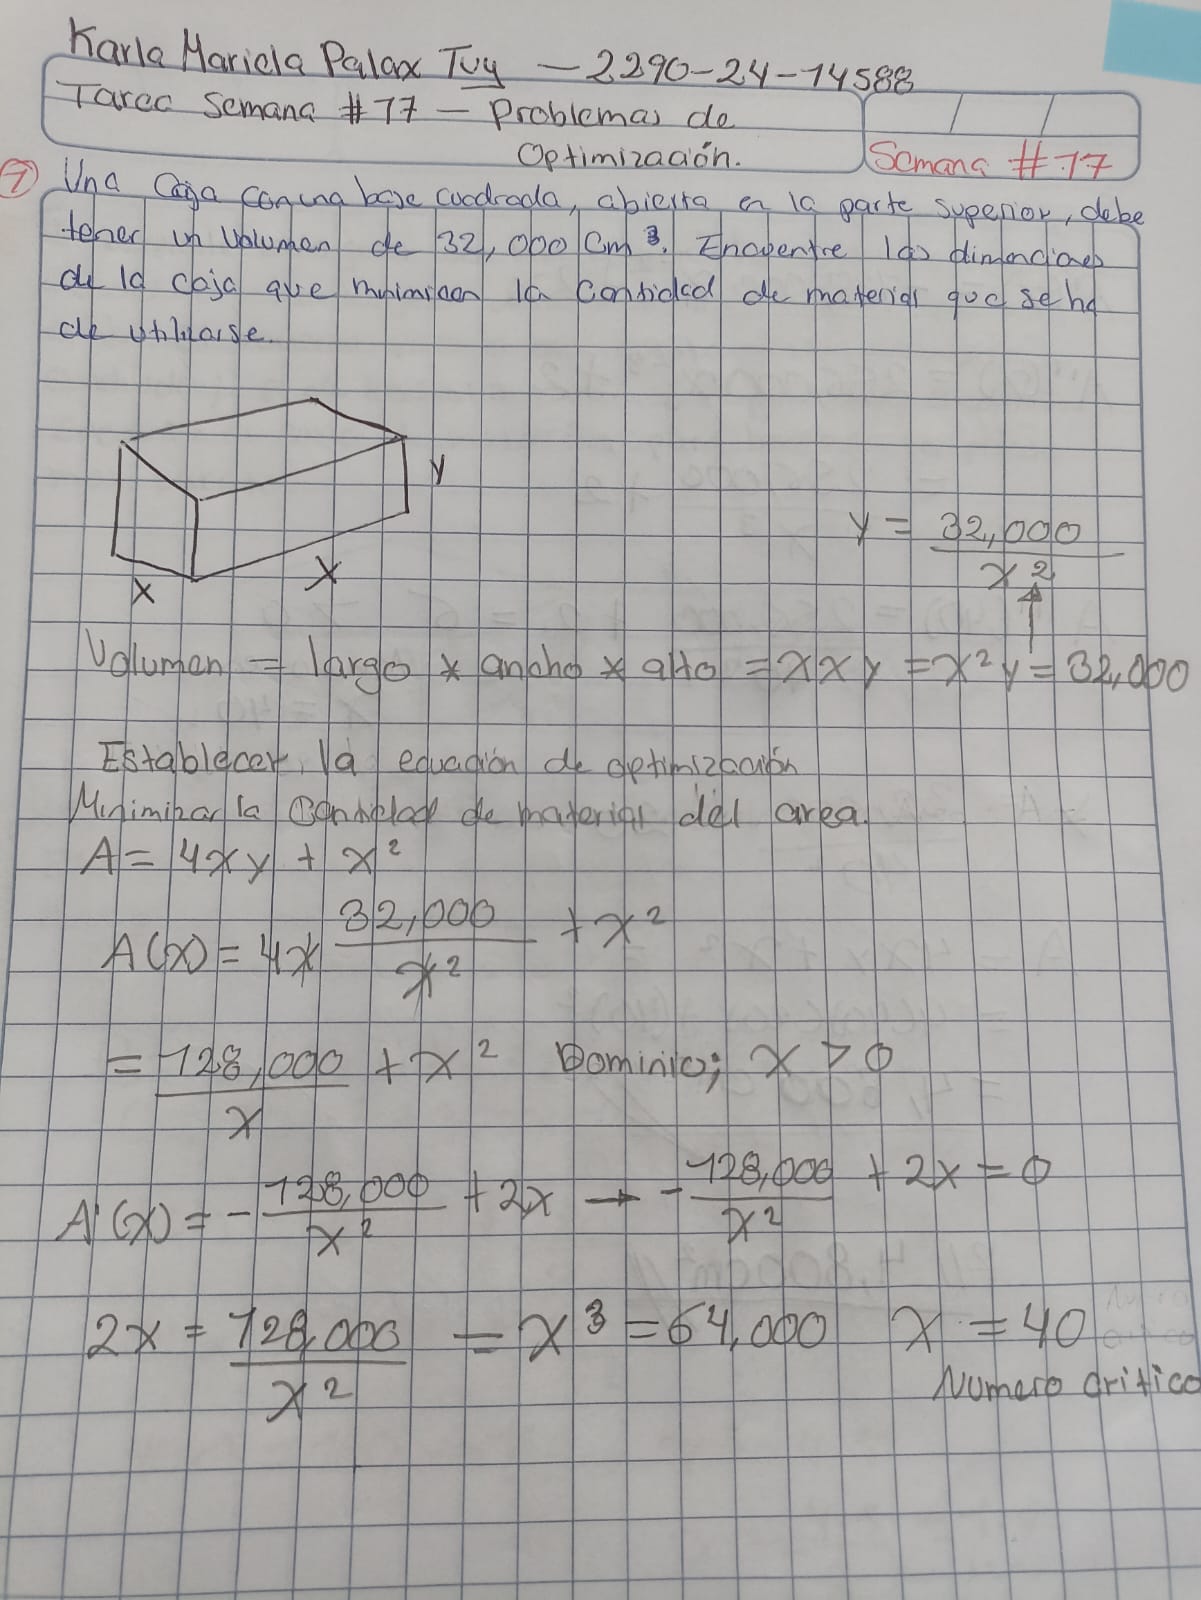 Karla Mariela Palax Tuy — 2290-24-14588
Tarea Semana #11 — Problemas de
Optimización.
Semana #11
1 Una Caja con una base cuadrada, abierta en la parte superior, debe
tener un volumen de 32,000 cm³. Encuentre las dimenciones
de la caja que minimicen la cantidad de material que se ha
de utilizarse.
y
x
x
y = 32,000 / x²
Volumen = largo * ancho * alto = x x y = x² y = 32,000
Establecer la ecuación de optimización
Minimizar la cantidad de material del area.
A = 4xy + x²
A(x) = 4x 32,000 / x² + x²
= 128,000 / x + x² Dominio; x > 0
A'(x) = - 128,000 / x² + 2x → - 128,000 / x² + 2x = 0
2x = 128,000 / x² = x³ = 64,000 x = 40
Numero critico